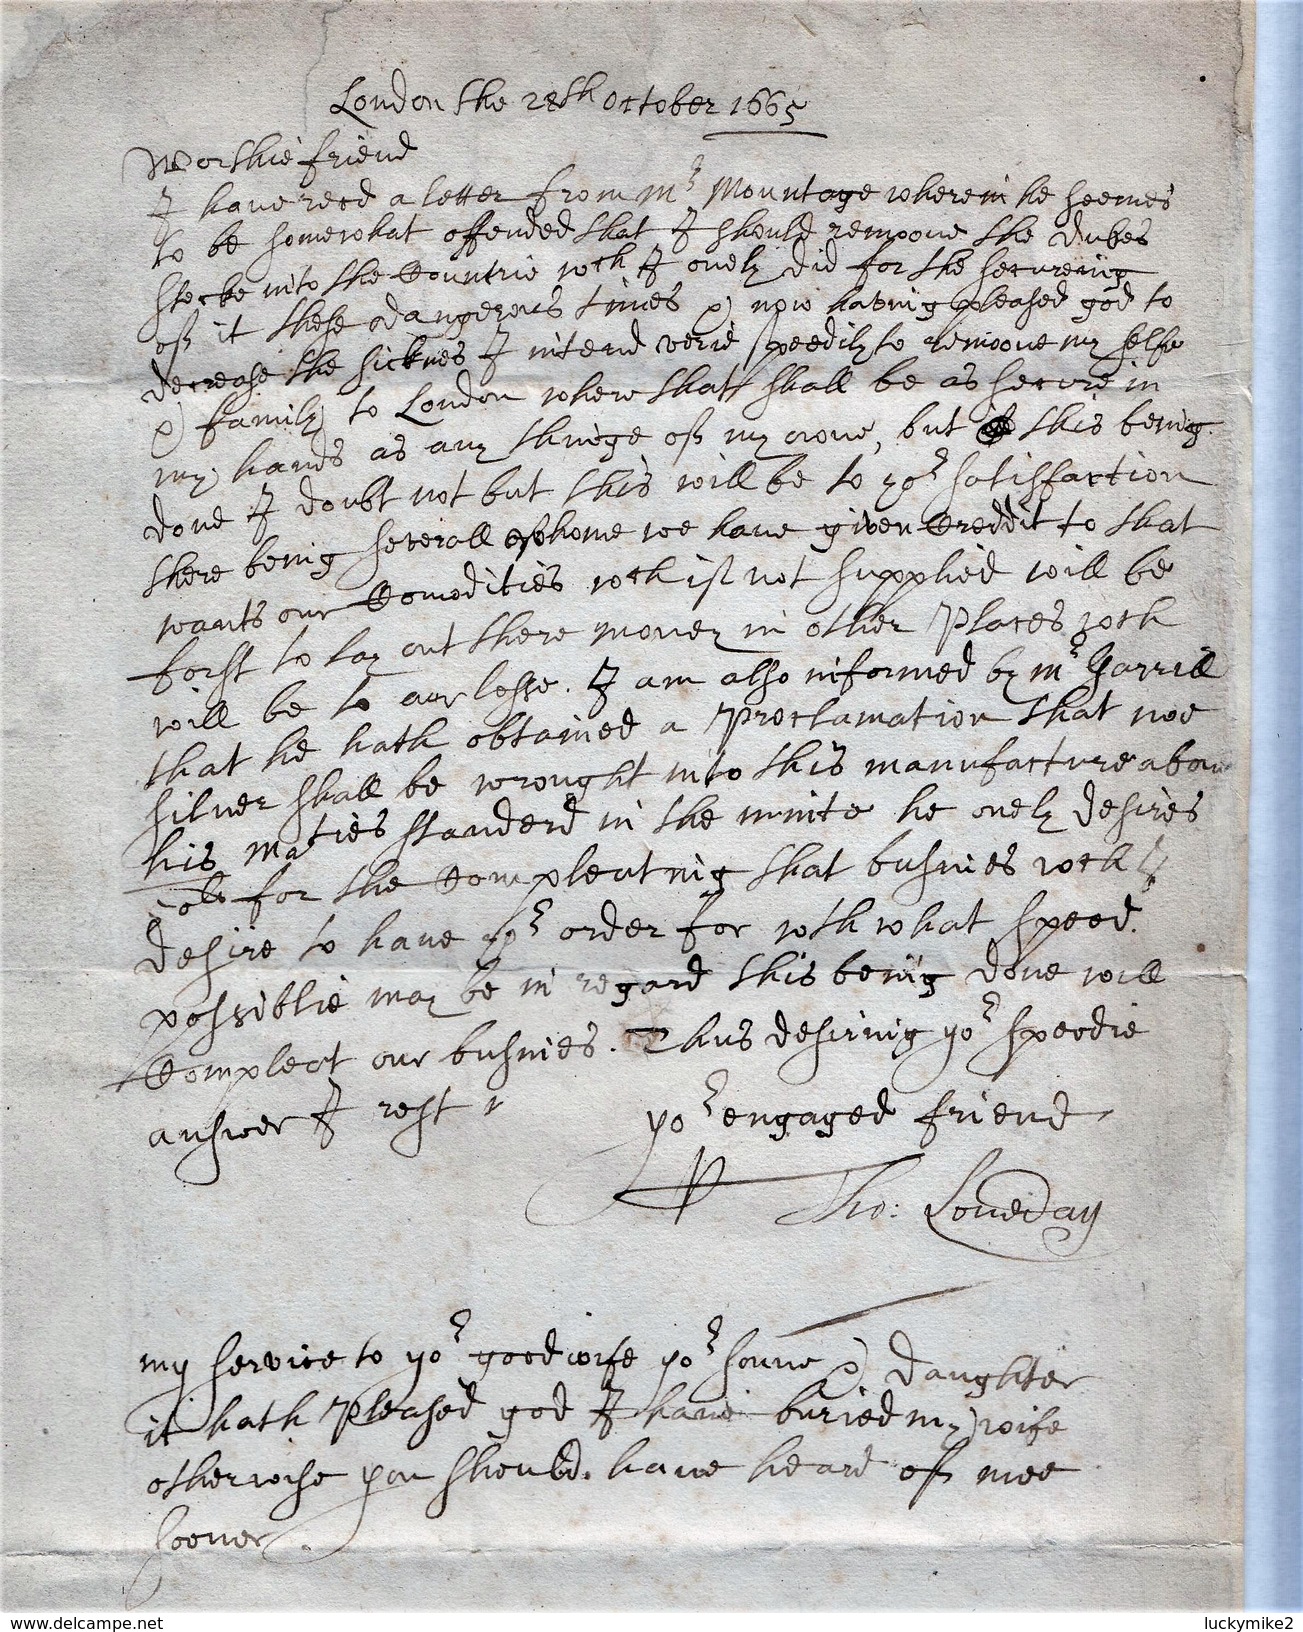 London the 28th October 1665
Worthie friend
I have recd a letter from Mr Mountage wherein he seemes
to be somewhat offended that I should remoove the dukes
stocke into the Countrie wch I onely did for the secureing
off it these dangerous times & now haveing pleased god to
decrease the sicknes I intend verie speedily to remoove my selfe
& family to London where that shall be as secure in
my hands as any thinge off my owne, but this being
done I doubt not but this will be to yor satisffaction
there being severall whome we have given Creddit to that
wants our Comodities wch iff not supplied will be
forst to lay out there money in other Places wch
will be to our losse. I am also informed by Mr Garrill
that he hath obtained a Proclamation that noe
silver shall be wrought into this manufacture above
his maties standerd in the minte he onely desires
for the Compleating that busines wch I
desire to have yor order for wth what speed
possiblie may be in regard this being done will
Compleat our busines. Thus desiring yor speedie
answer I rest
yor engaged friend
Tho: Loveday
my service to yor good wife yor sonne & daughter
it hath Pleased god I have buried my wife
otherwise you should have heard off mee
sooner.
www.delcampe.net
luckymike2